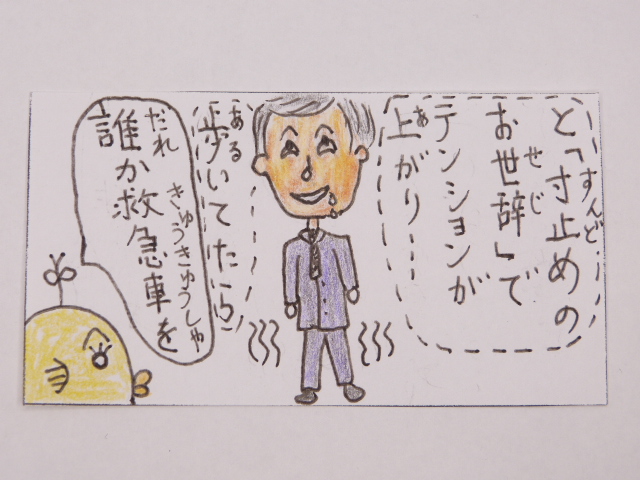 と「寸止めの
すんど
お世辞」で
せじ
テンションが
上がり…
あ
歩いてたら
ある
誰か救急車を
だれ きゅうきゅうしゃ